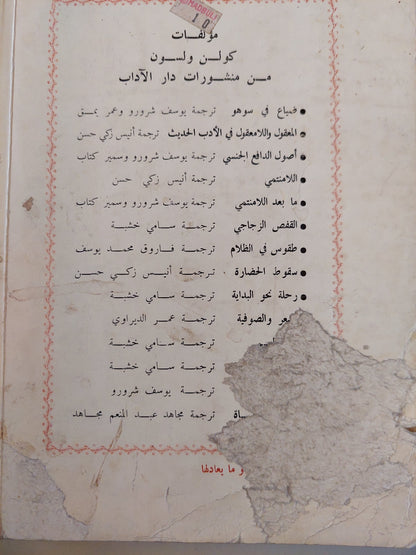 MADBULI
10
مؤلفات
كولن ولسون
من منشورات دار الآداب
● ضياع في سوهو ترجمة يوسف شرورو وعمر يمق
● المعقول واللامعقول في الأدب الحديث ترجمة أنيس زكي حسن
● أصول الدافع الجنسي ترجمة يوسف شرورو وسمير كتاب
● اللامنتمي ترجمة أنيس زكي حسن
● ما بعد اللامنتمي ترجمة يوسف شرورو وسمير كتاب
● القفص الزجاجي ترجمة سامي خشبة
● طقوس في الظلام ترجمة فاروق محمد يوسف
● سقوط الحضارة ترجمة أنيس زكي حسن
● رحلة نحو البداية ترجمة سامي خشبة
والصوفية ترجمة عمر الديراوي
ترجمة سامي خشبة
ترجمة سامي خشبة
ترجمة يوسف شرورو
ترجمة مجاهد عبد المنعم مجاهد
و ما يعادلها